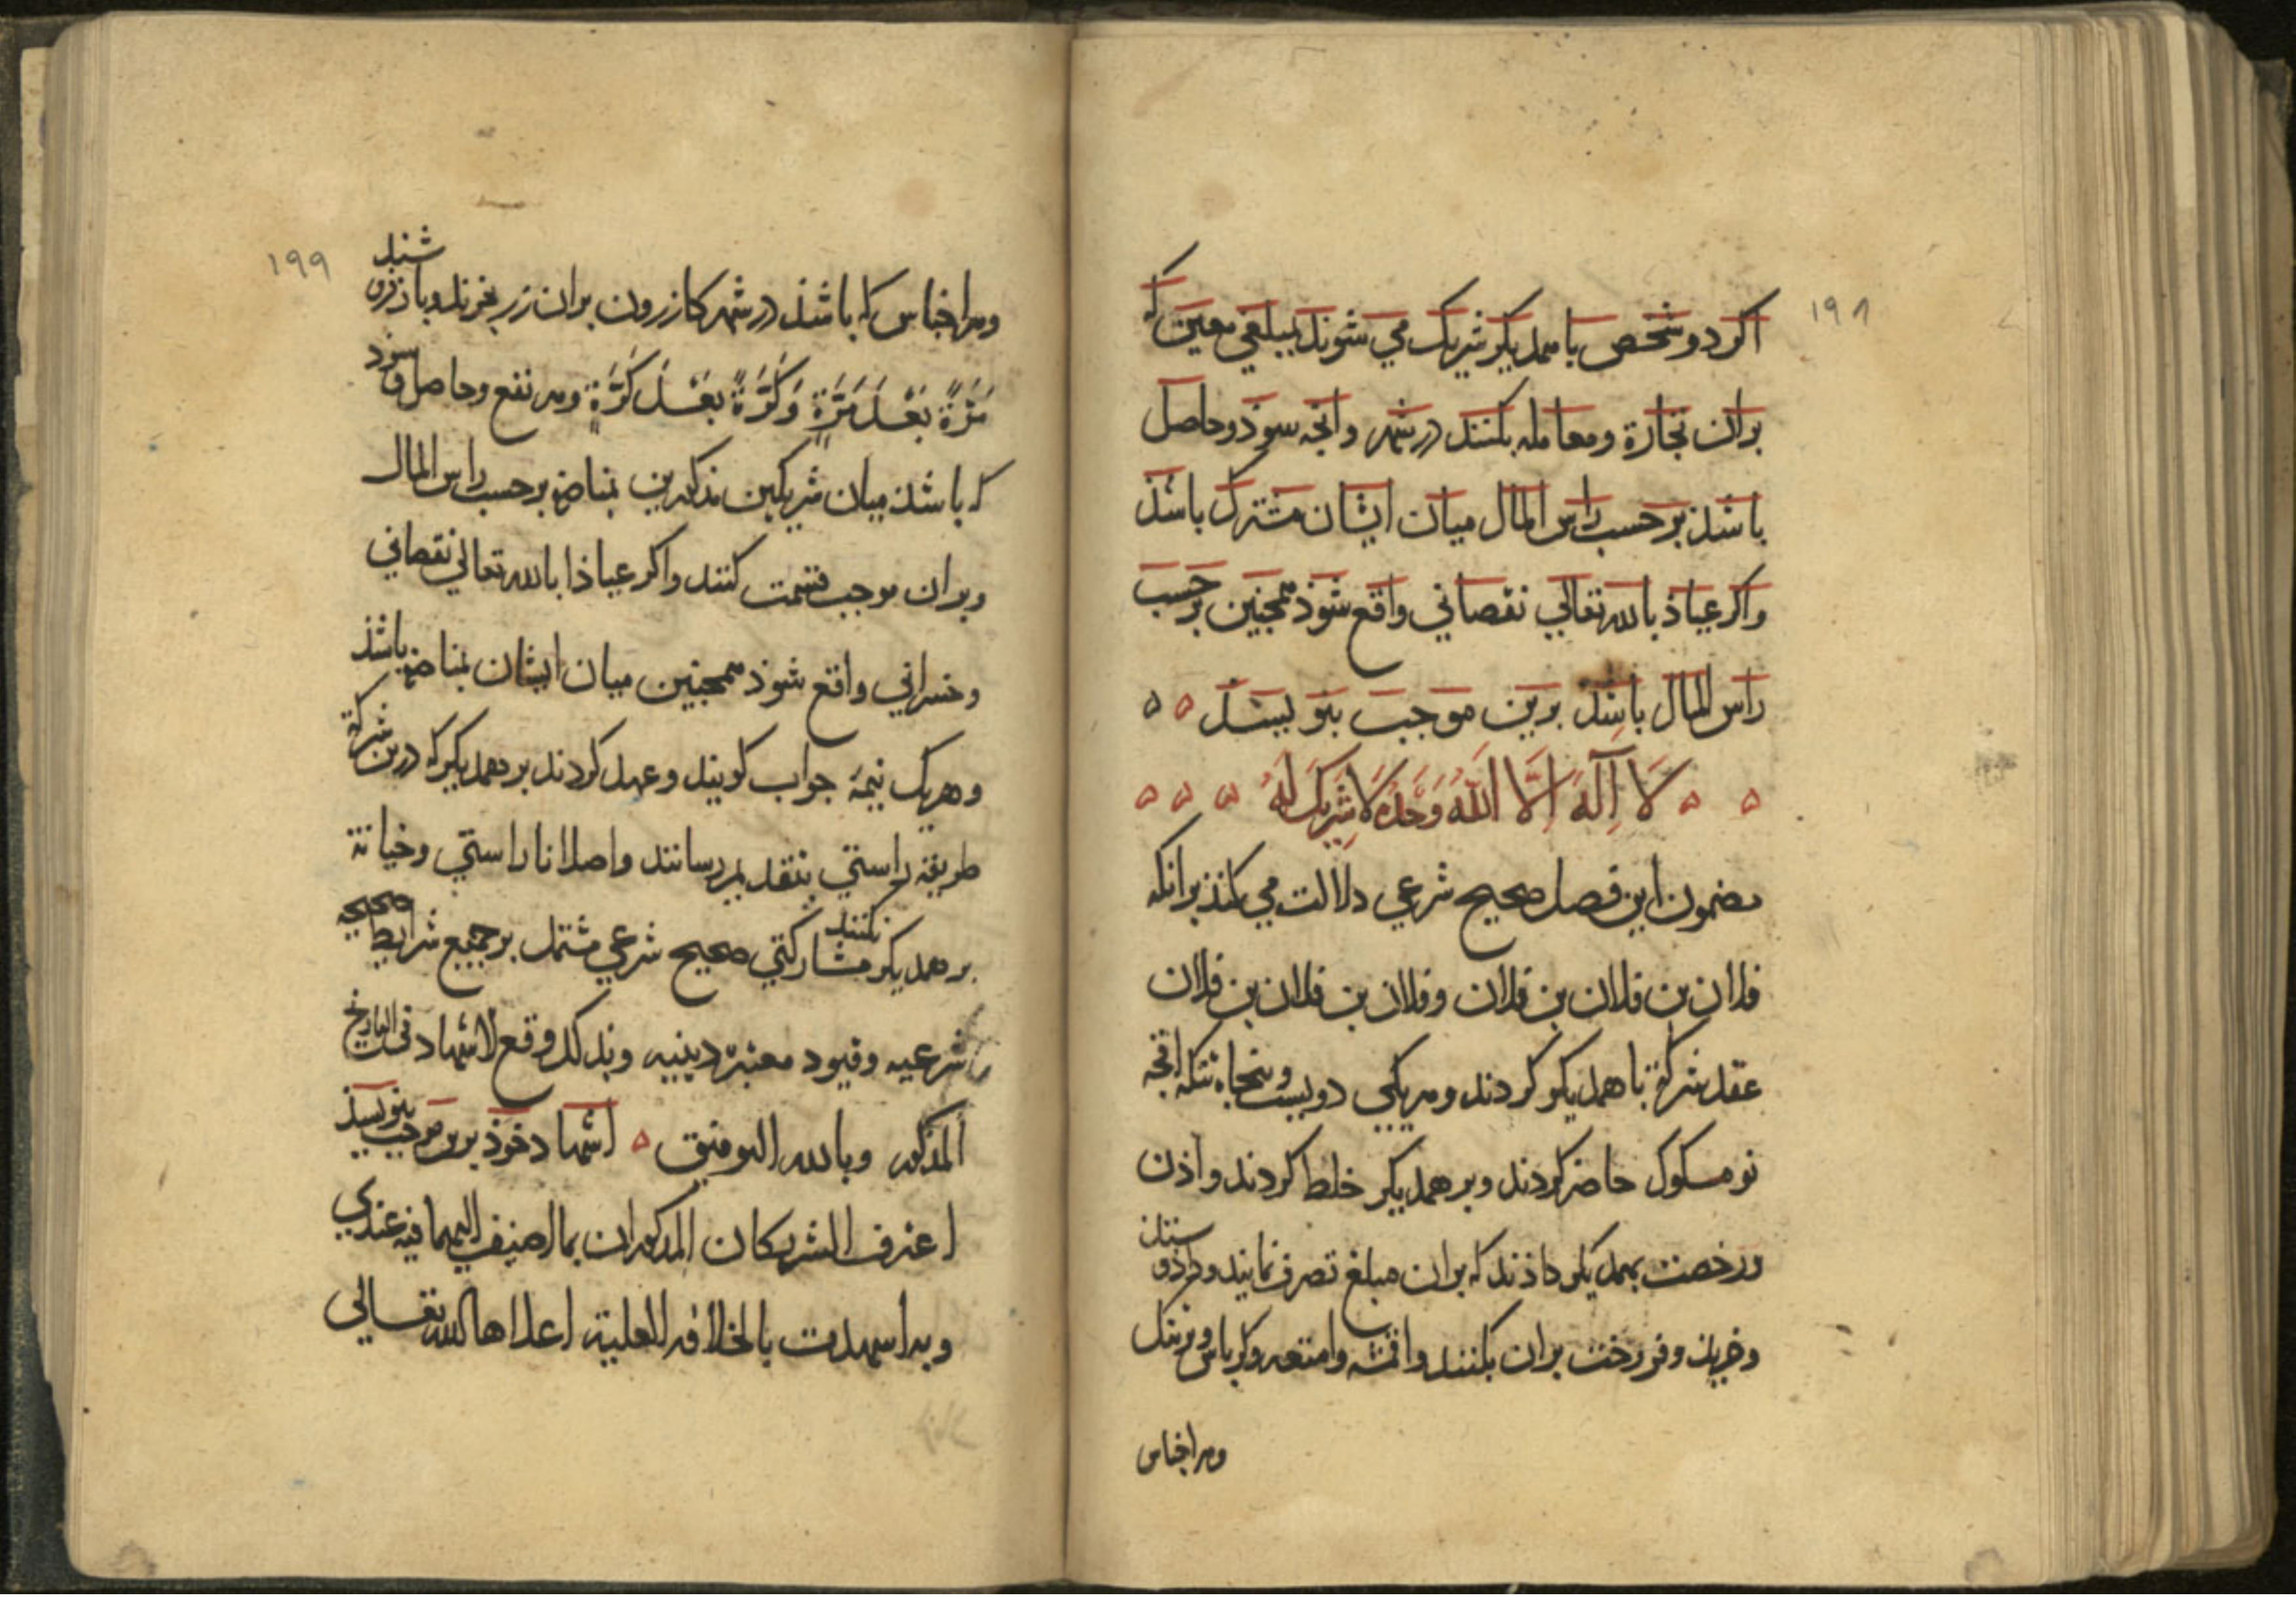 ۱۹۸
اکر دو شخص با همدیکر شریک می شوند بمبلغی معین که
بران تجارة ومعامله بکنند در شهر وانچه سوذ وحاصل
باشذ بر حسب راس المال میان ایشان مشترک باشذ
واکر عیاذ بالله تعالی نقصانی واقع شوذ همچنین بر حسب
راس المال باشد برین موجب بنویسند
لَا اِلَهَ اِلَّا اللَّهُ وَحْدَهُ لَا شَرِیکَ لَهُ
مضمون این فصل صحیح شرعی دلالت می کنذ برانکه
فلان بن فلان بن فلان وفلان بن فلان بن فلان
عقد شرکة با همدیکر کردند وهر یکی دویست وپنجاه تنکه اقچه
نو مسکوک حاضر کردند وبر همدیکر خلط کردند واذن
ورخصت بهمدیکر داذند که بران مبلغ تصرف نمایند وداذوستذ
وخریذ وفروخت بران بکنند واقمشه وامتعه وکرباس
وهر اجناس
۱۹۹
وهر اجناس که باشذ در شهر کازرون بران زر بخرند وباز فروشند
مَرَّةً بَعْدَ مَرَّةٍ وَکَرَّةً بَعْدَ کَرَّةٍ وهر نفع وحاصل وسوذ
که باشذ میان شریکین مذکورین بمناصفه بر حسب راس المال
وبران موجب قسمت کنند واکر عیاذا بالله تعالی نقصانی
وخسرانی واقع شوذ همچنین میان ایشان بمناصفه باشذ
وهر یک نیمهٔ جواب کویند وعهد کردند بر همدیکر که درین شرکة
طریقه راستی بتقدیم رسانند واصلا ناراستی وخیانة
بر همدیکر نکنند مشارکتی صحیح شرعی مشتمل بر جمیع شرایط صحیحه
شرعیه وقیود معتبرة دینیه وبذلک وقع الاشهاد فی التاریخ
المذکور وبالله التوفیق اشهاد خوذ برین موجب بنویسذ
اعترف الشریکان المذکوران بما اضیف الیهما فیه عندی
وبه اشهدت بالخلافة العلیة اعلاها الله تعالی